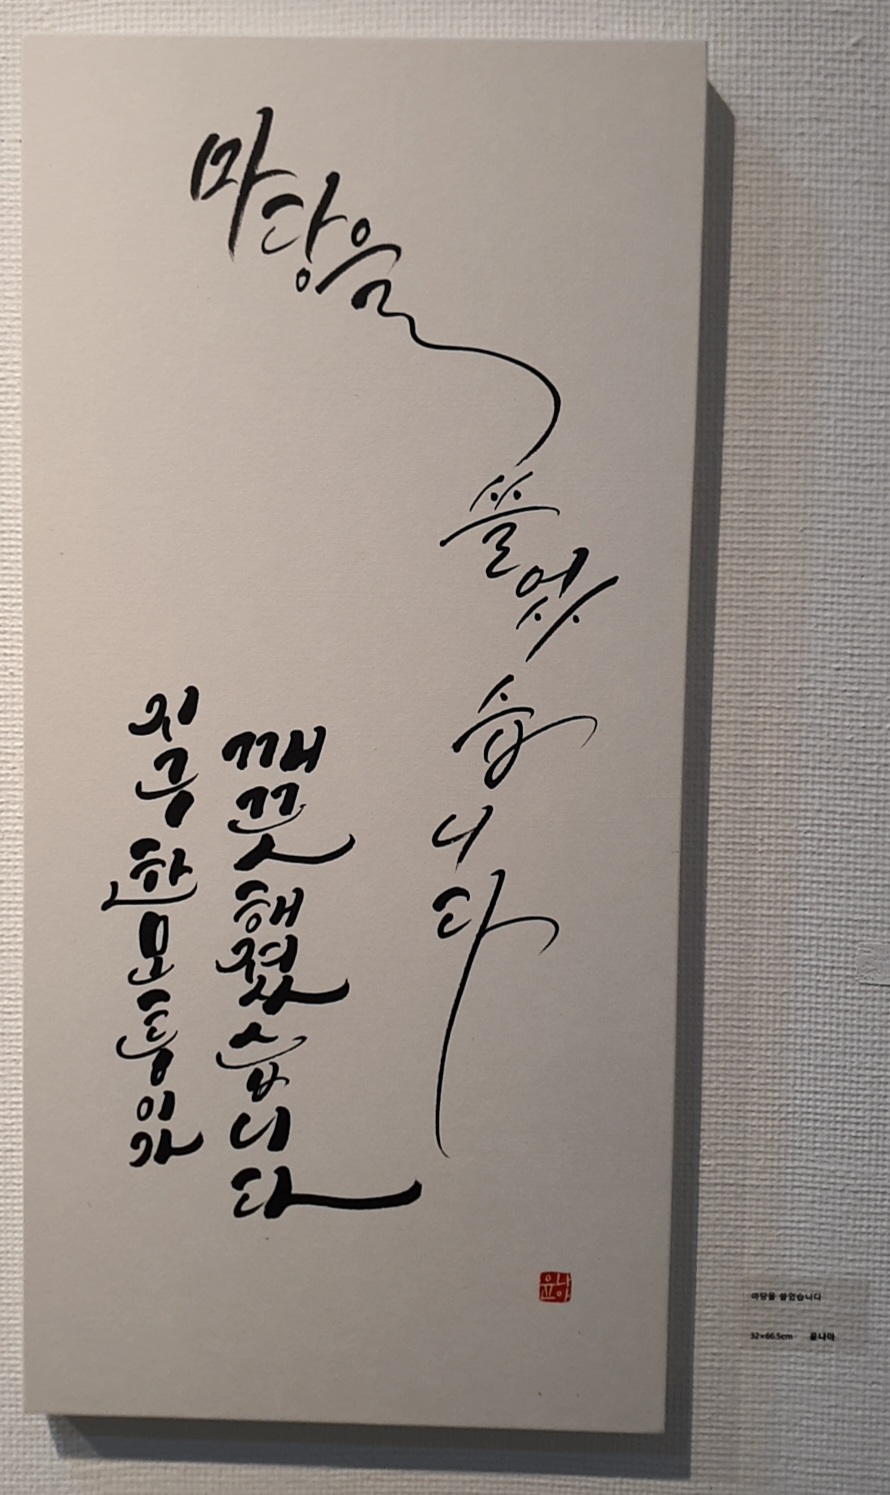 마당을
쓸었습니다
지구 한 모퉁이가
깨끗해졌습니다
마당을 쓸었습니다
32×66.5cm